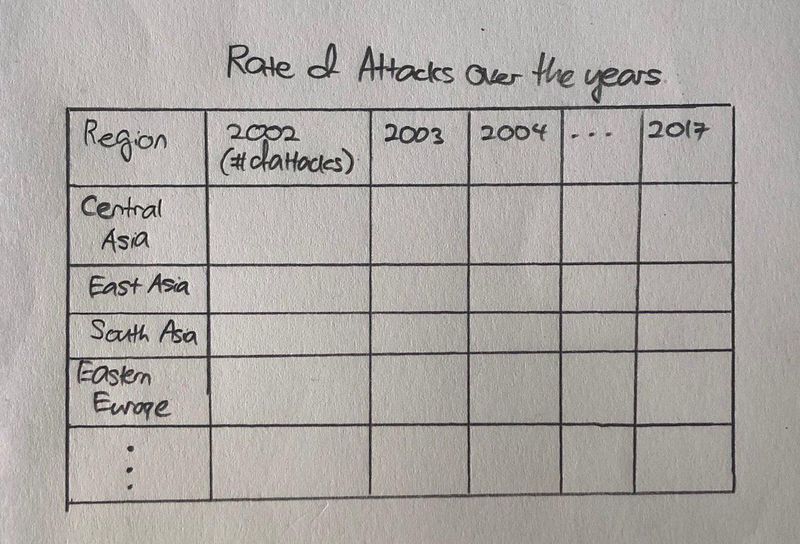 Rate of Attacks over the years
Region
2002
(# of attacks)
2003
2004
...
2017
Central
Asia
East Asia
South Asia
Eastern
Europe
⋮